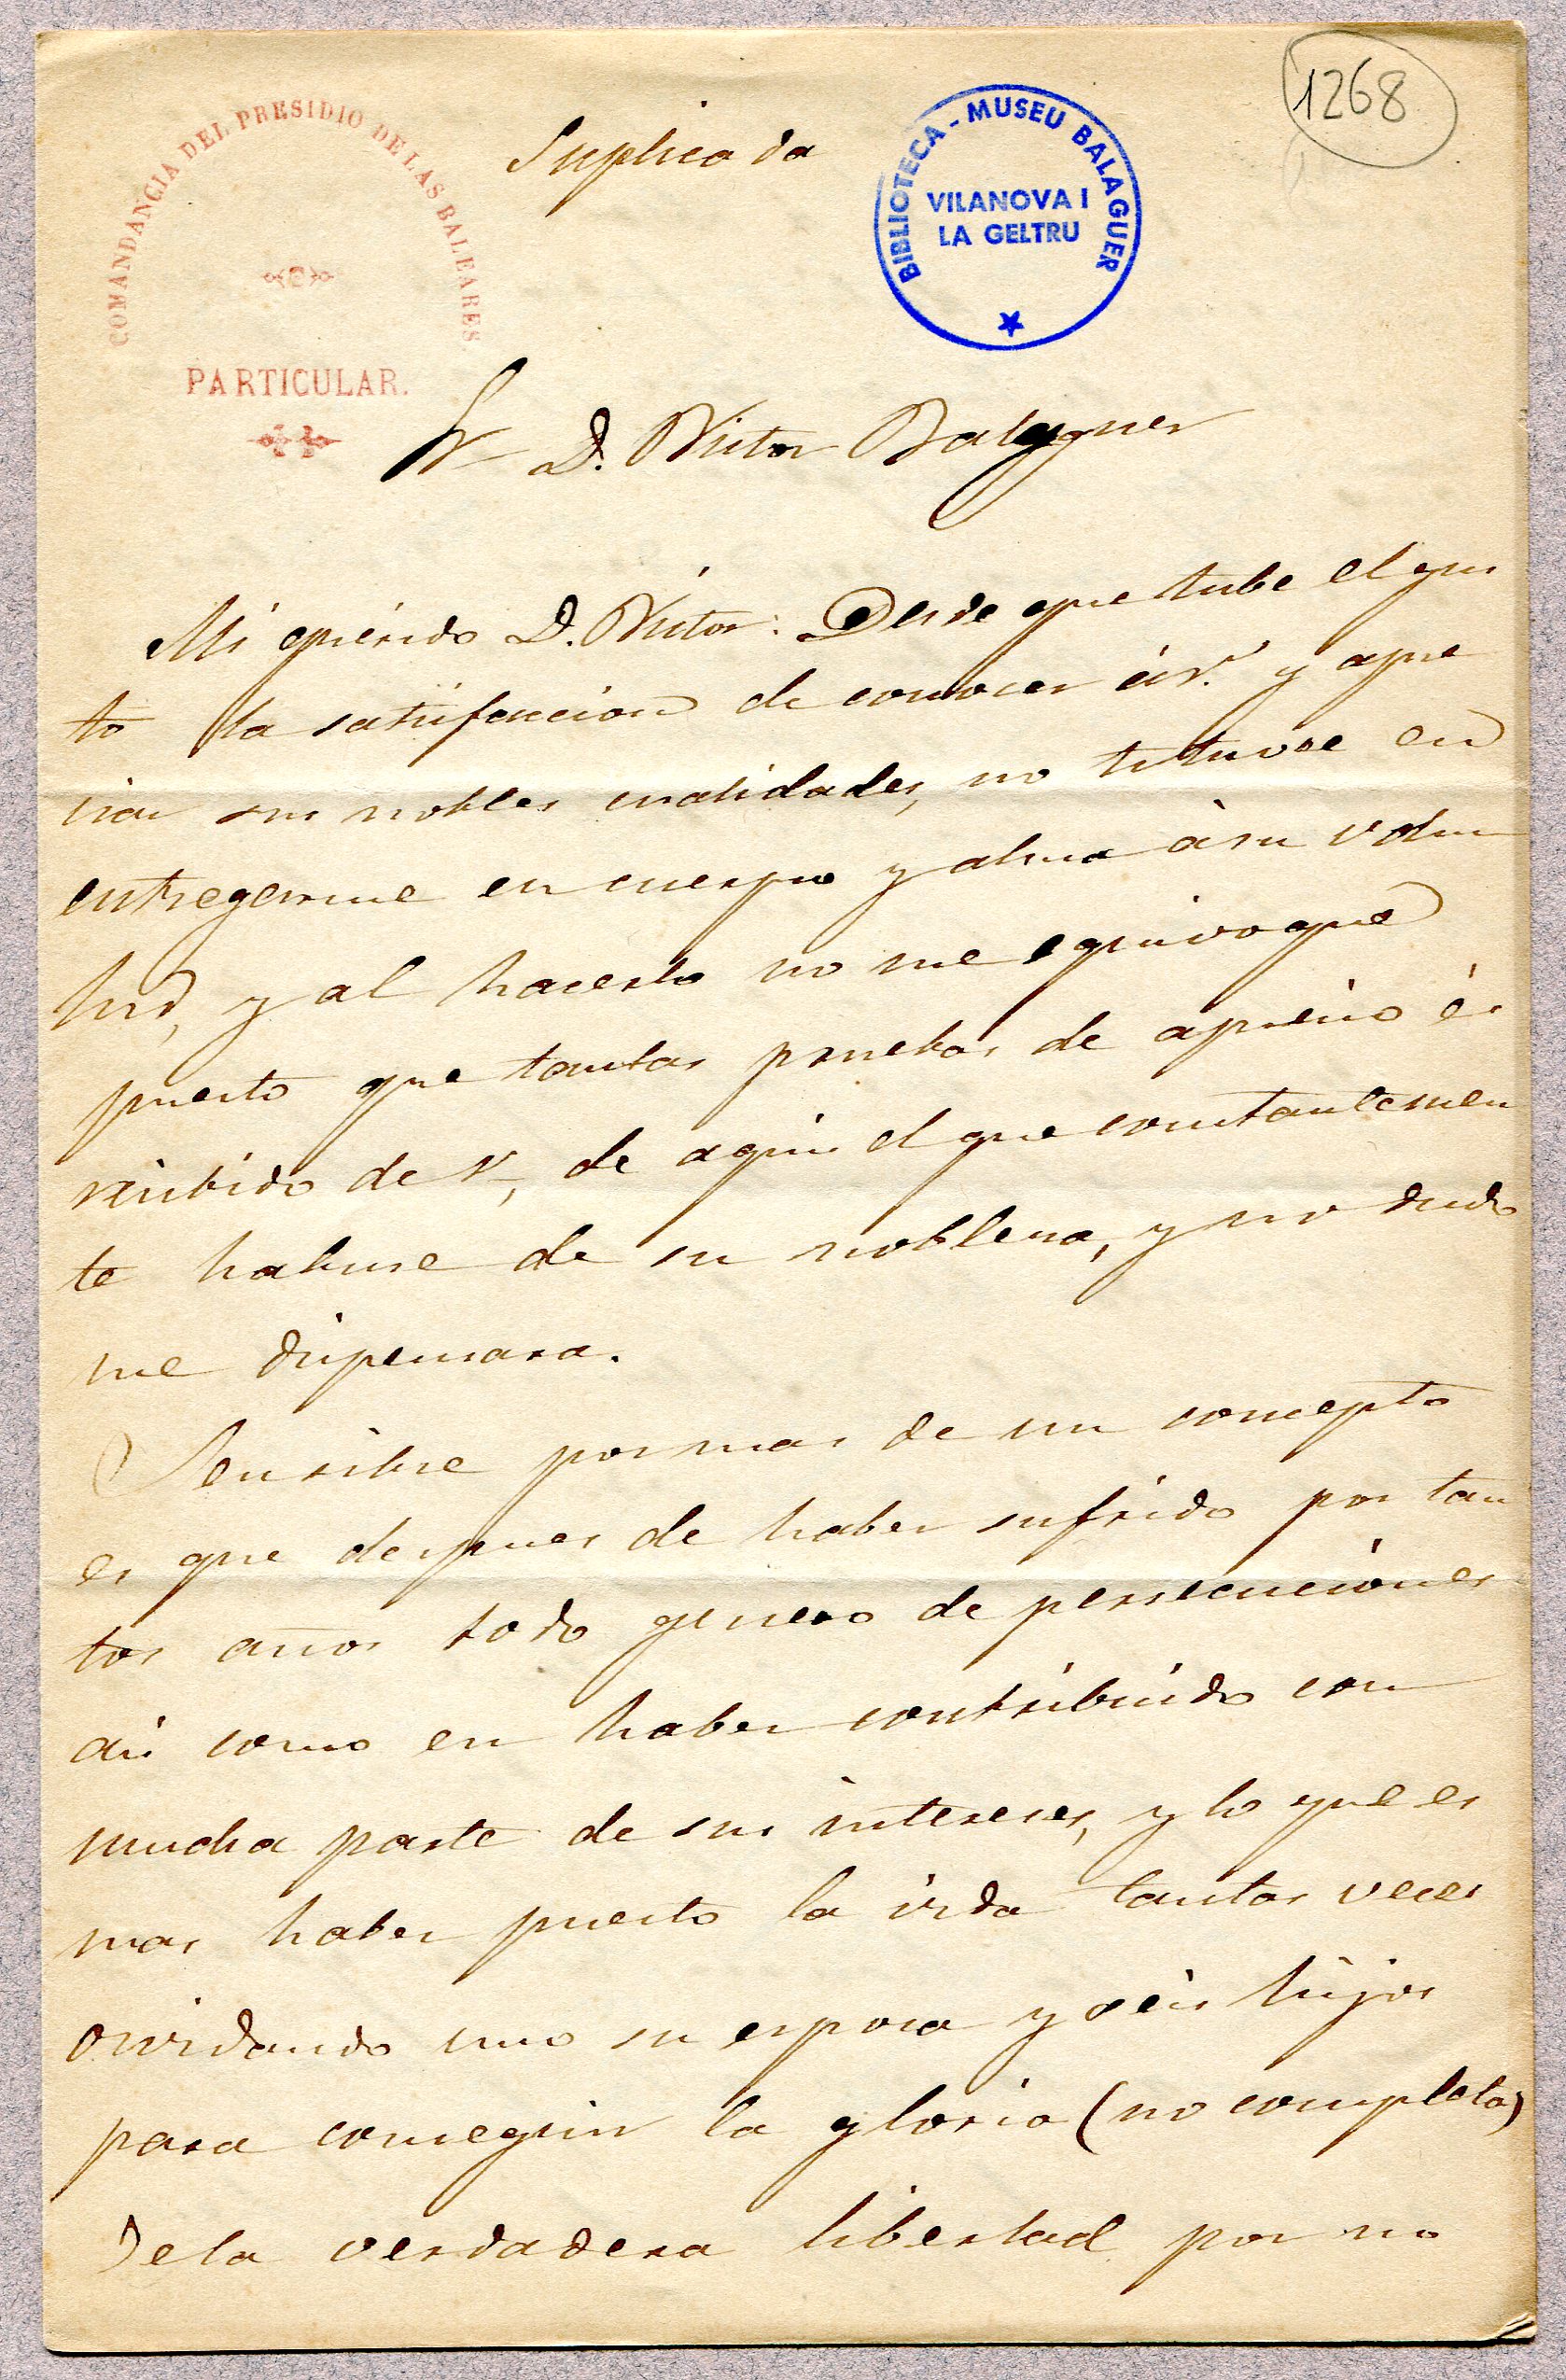 1268
COMANDANCIA DEL PRESIDIO DE LAS BALEARES.
PARTICULAR.
Suplicada
BIBLIOTECA - MUSEU BALAGUER
VILANOVA I
LA GELTRU
Sr D. Victor Balaguer
Mi querido D. Victor: Desde que tube el gus
to la satisfaccion de conocer á V. y apre
ciar sus nobles cualidades, no titubee en
entregarme en cuerpo y alma á su volun
tad, y al hacerlo no me equivoque
puesto que tantas pruebas de aprecio é
recibido de V, de aqui el que constantemen
te habuse de su nobleza, y no dudo
me dispensara.
Sensible por mas de un concepto
es que despues de haber sufrido por tan
tos años todo genero de persecuciones
asi como en haber contribuido con
mucha parte de sus intereses, y lo que es
mas haber puesto la vida tantas veces
olvidando uno su esposa y seis hijos
para conseguir la gloria (no completa)
de la verdadera libertad por no